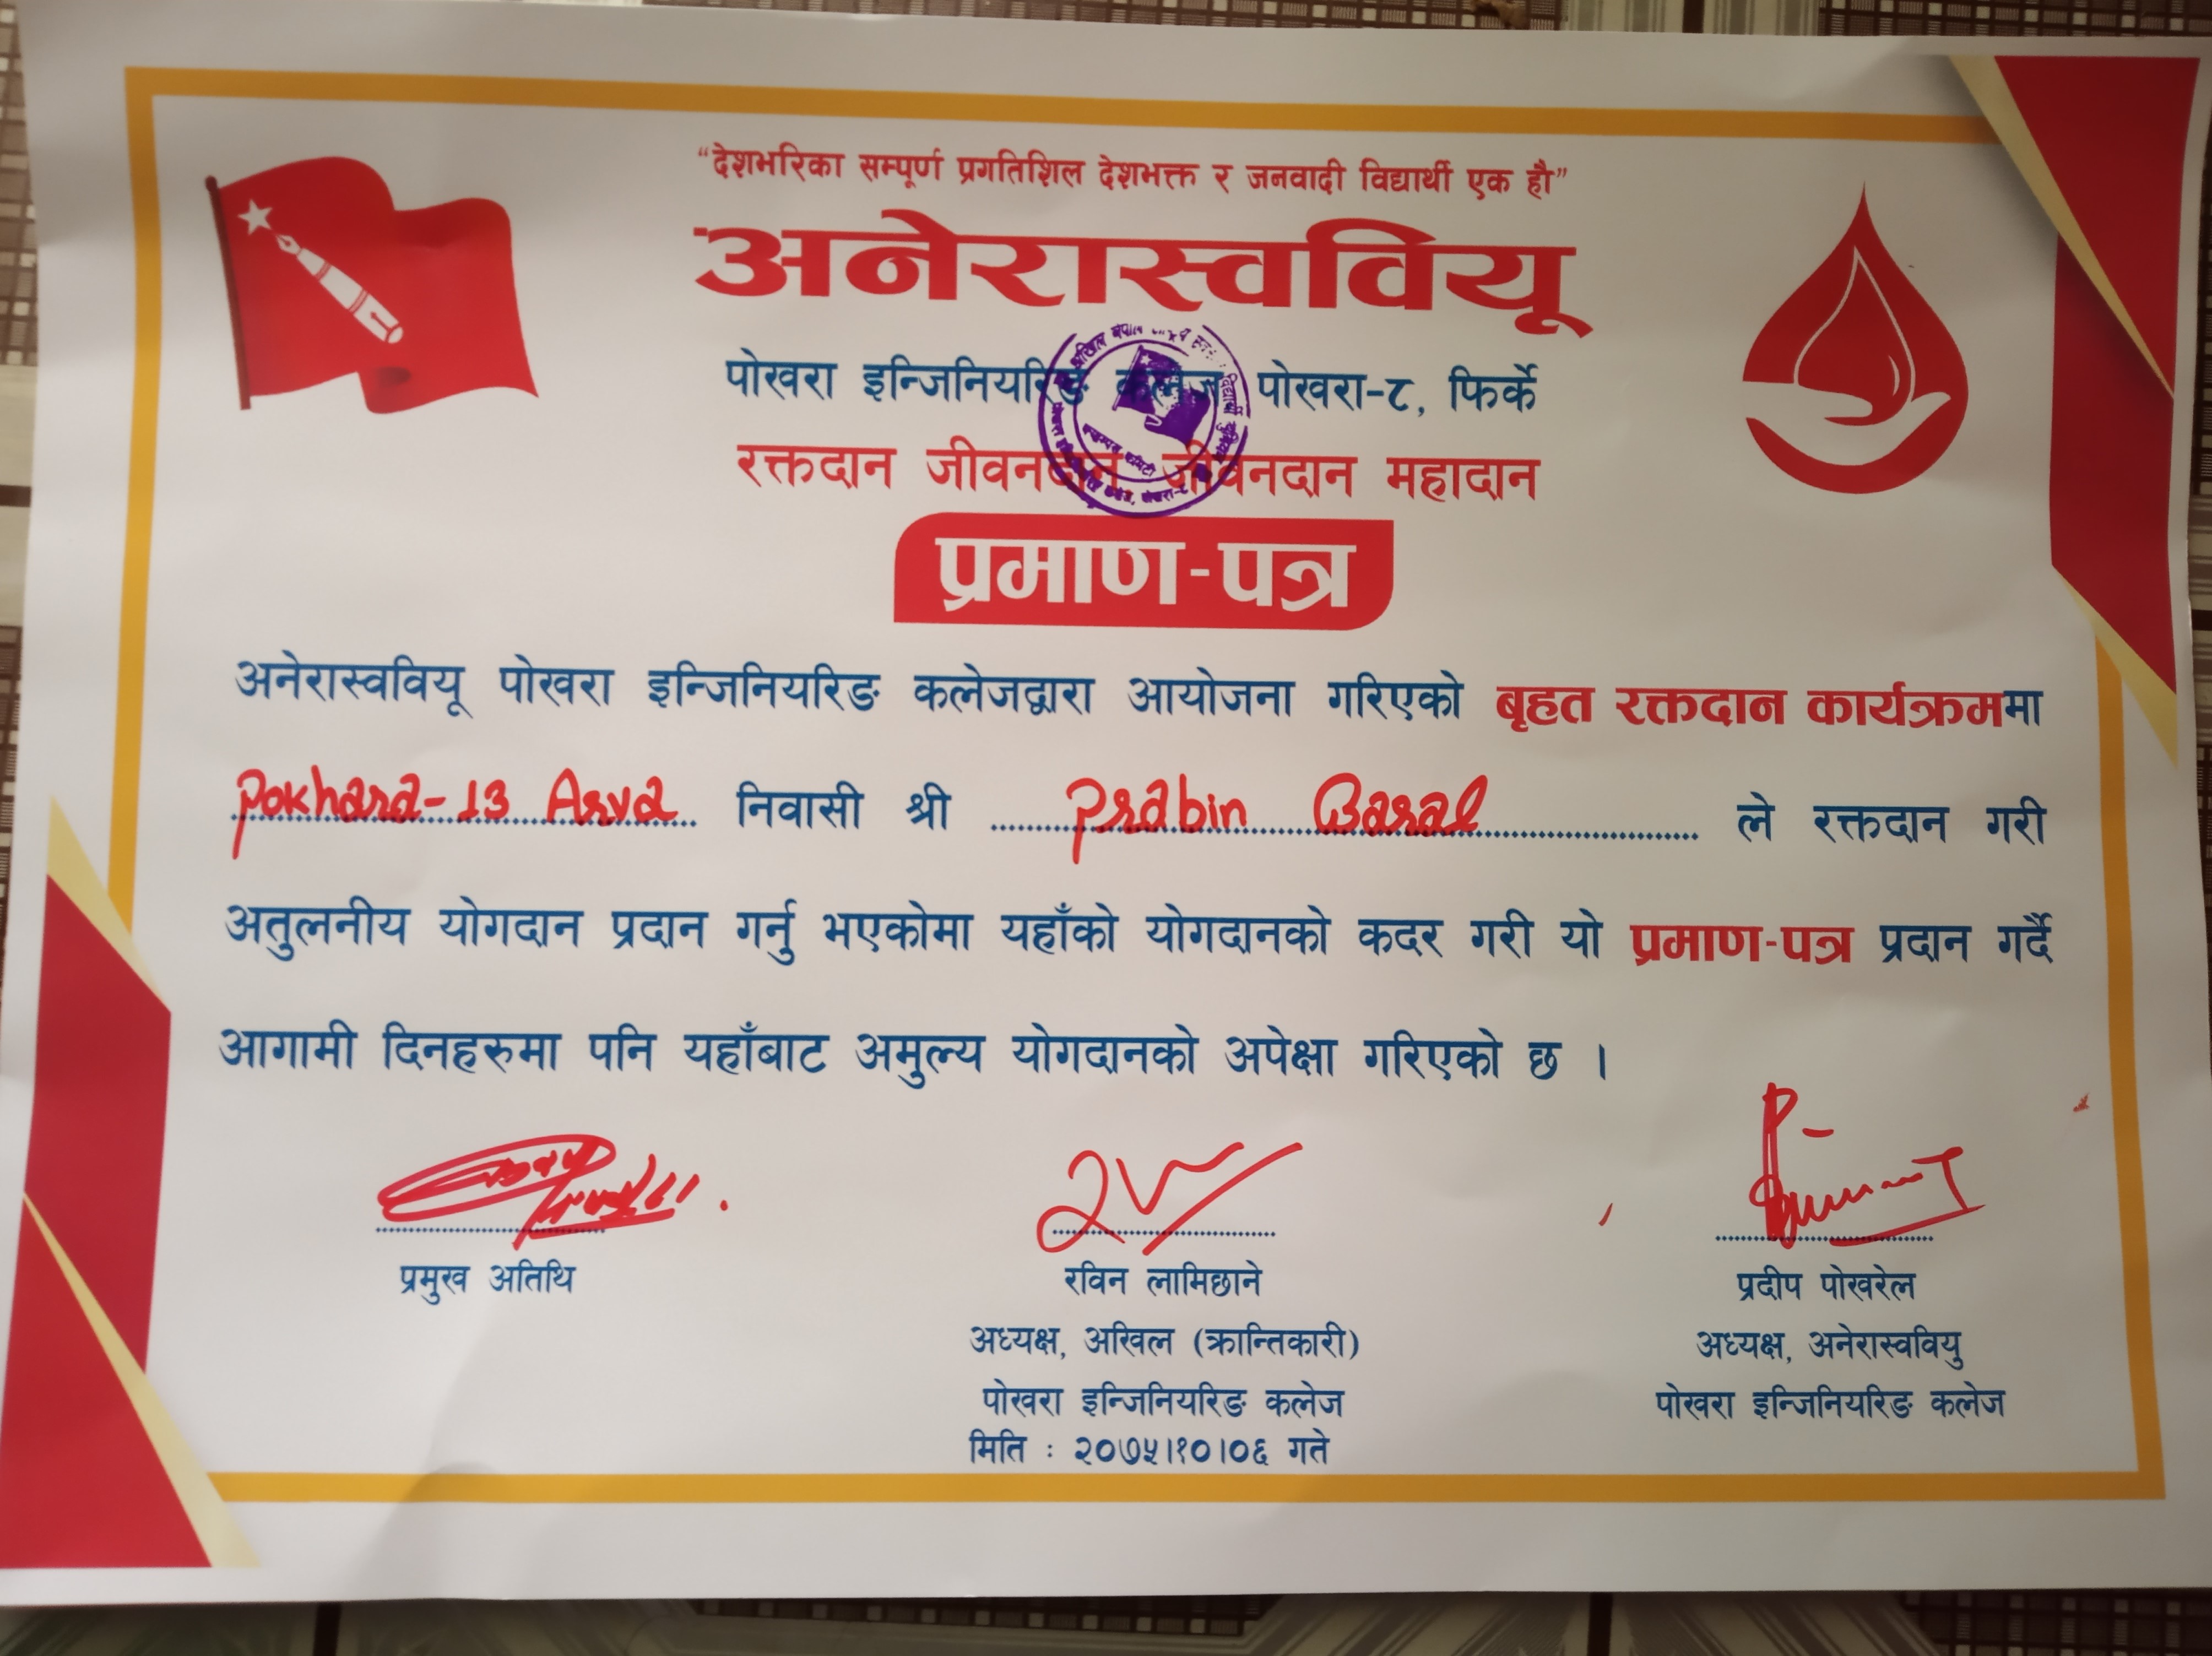 “देशभरिका सम्पूर्ण प्रगतिशिल देशभक्त र जनवादी विद्यार्थी एक हौ”
अनेरास्ववियू
पोखरा इन्जिनियरिङ कलेज पोखरा-८, फिर्के
रक्तदान जीवनदान जीवनदान महादान
प्रमाण-पत्र
अनेरास्ववियू पोखरा इन्जिनियरिङ कलेजद्वारा आयोजना गरिएको बृहत रक्तदान कार्यक्रममा
Pokhara-13 Arva निवासी श्री Prabin Baral ले रक्तदान गरी
अतुलनीय योगदान प्रदान गर्नु भएकोमा यहाँको योगदानको कदर गरी यो प्रमाण-पत्र प्रदान गर्दै
आगामी दिनहरुमा पनि यहाँबाट अमुल्य योगदानको अपेक्षा गरिएको छ ।
प्रमुख अतिथि
रविन लामिछाने
अध्यक्ष, अखिल (क्रान्तिकारी)
पोखरा इन्जिनियरिङ कलेज
मिति : २०७५।१०।०६ गते
प्रदीप पोखरेल
अध्यक्ष, अनेरास्ववियु
पोखरा इन्जिनियरिङ कलेज